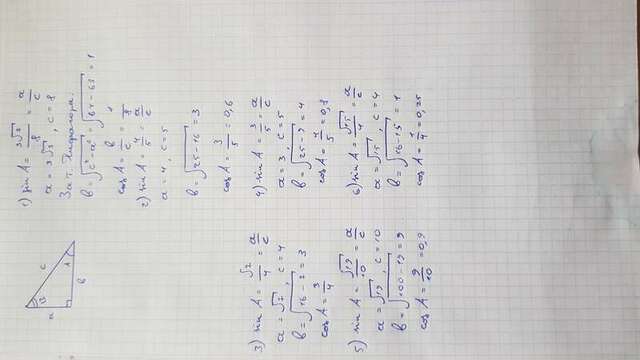 a
B
c
A
b
1) sin A = 3√7/8 = a/c
a = 3√7, c = 8
За т. Піфагора:
b = √c² - a² = √64 - 63 = 1
cos A = b/c = 1/8
2) sin A = 4/5 = a/c
a = 4, c = 5
b = √25 - 16 = 3
cos A = 3/5 = 0,6
3) sin A = √7/4 = a/c
a = √7, c = 4
b = √16 - 7 = 3
cos A = 3/4
4) sin A = 3/5 = a/c
a = 3, c = 5
b = √25 - 9 = 4
cos A = 4/5 = 0,8
5) sin A = √19/10 = a/c
a = √19, c = 10
b = √100 - 19 = 9
cos A = 9/10 = 0,9
6) sin A = √15/4 = a/c
a = √15, c = 4
b = √16 - 15 = 1
cos A = 1/4 = 0,25